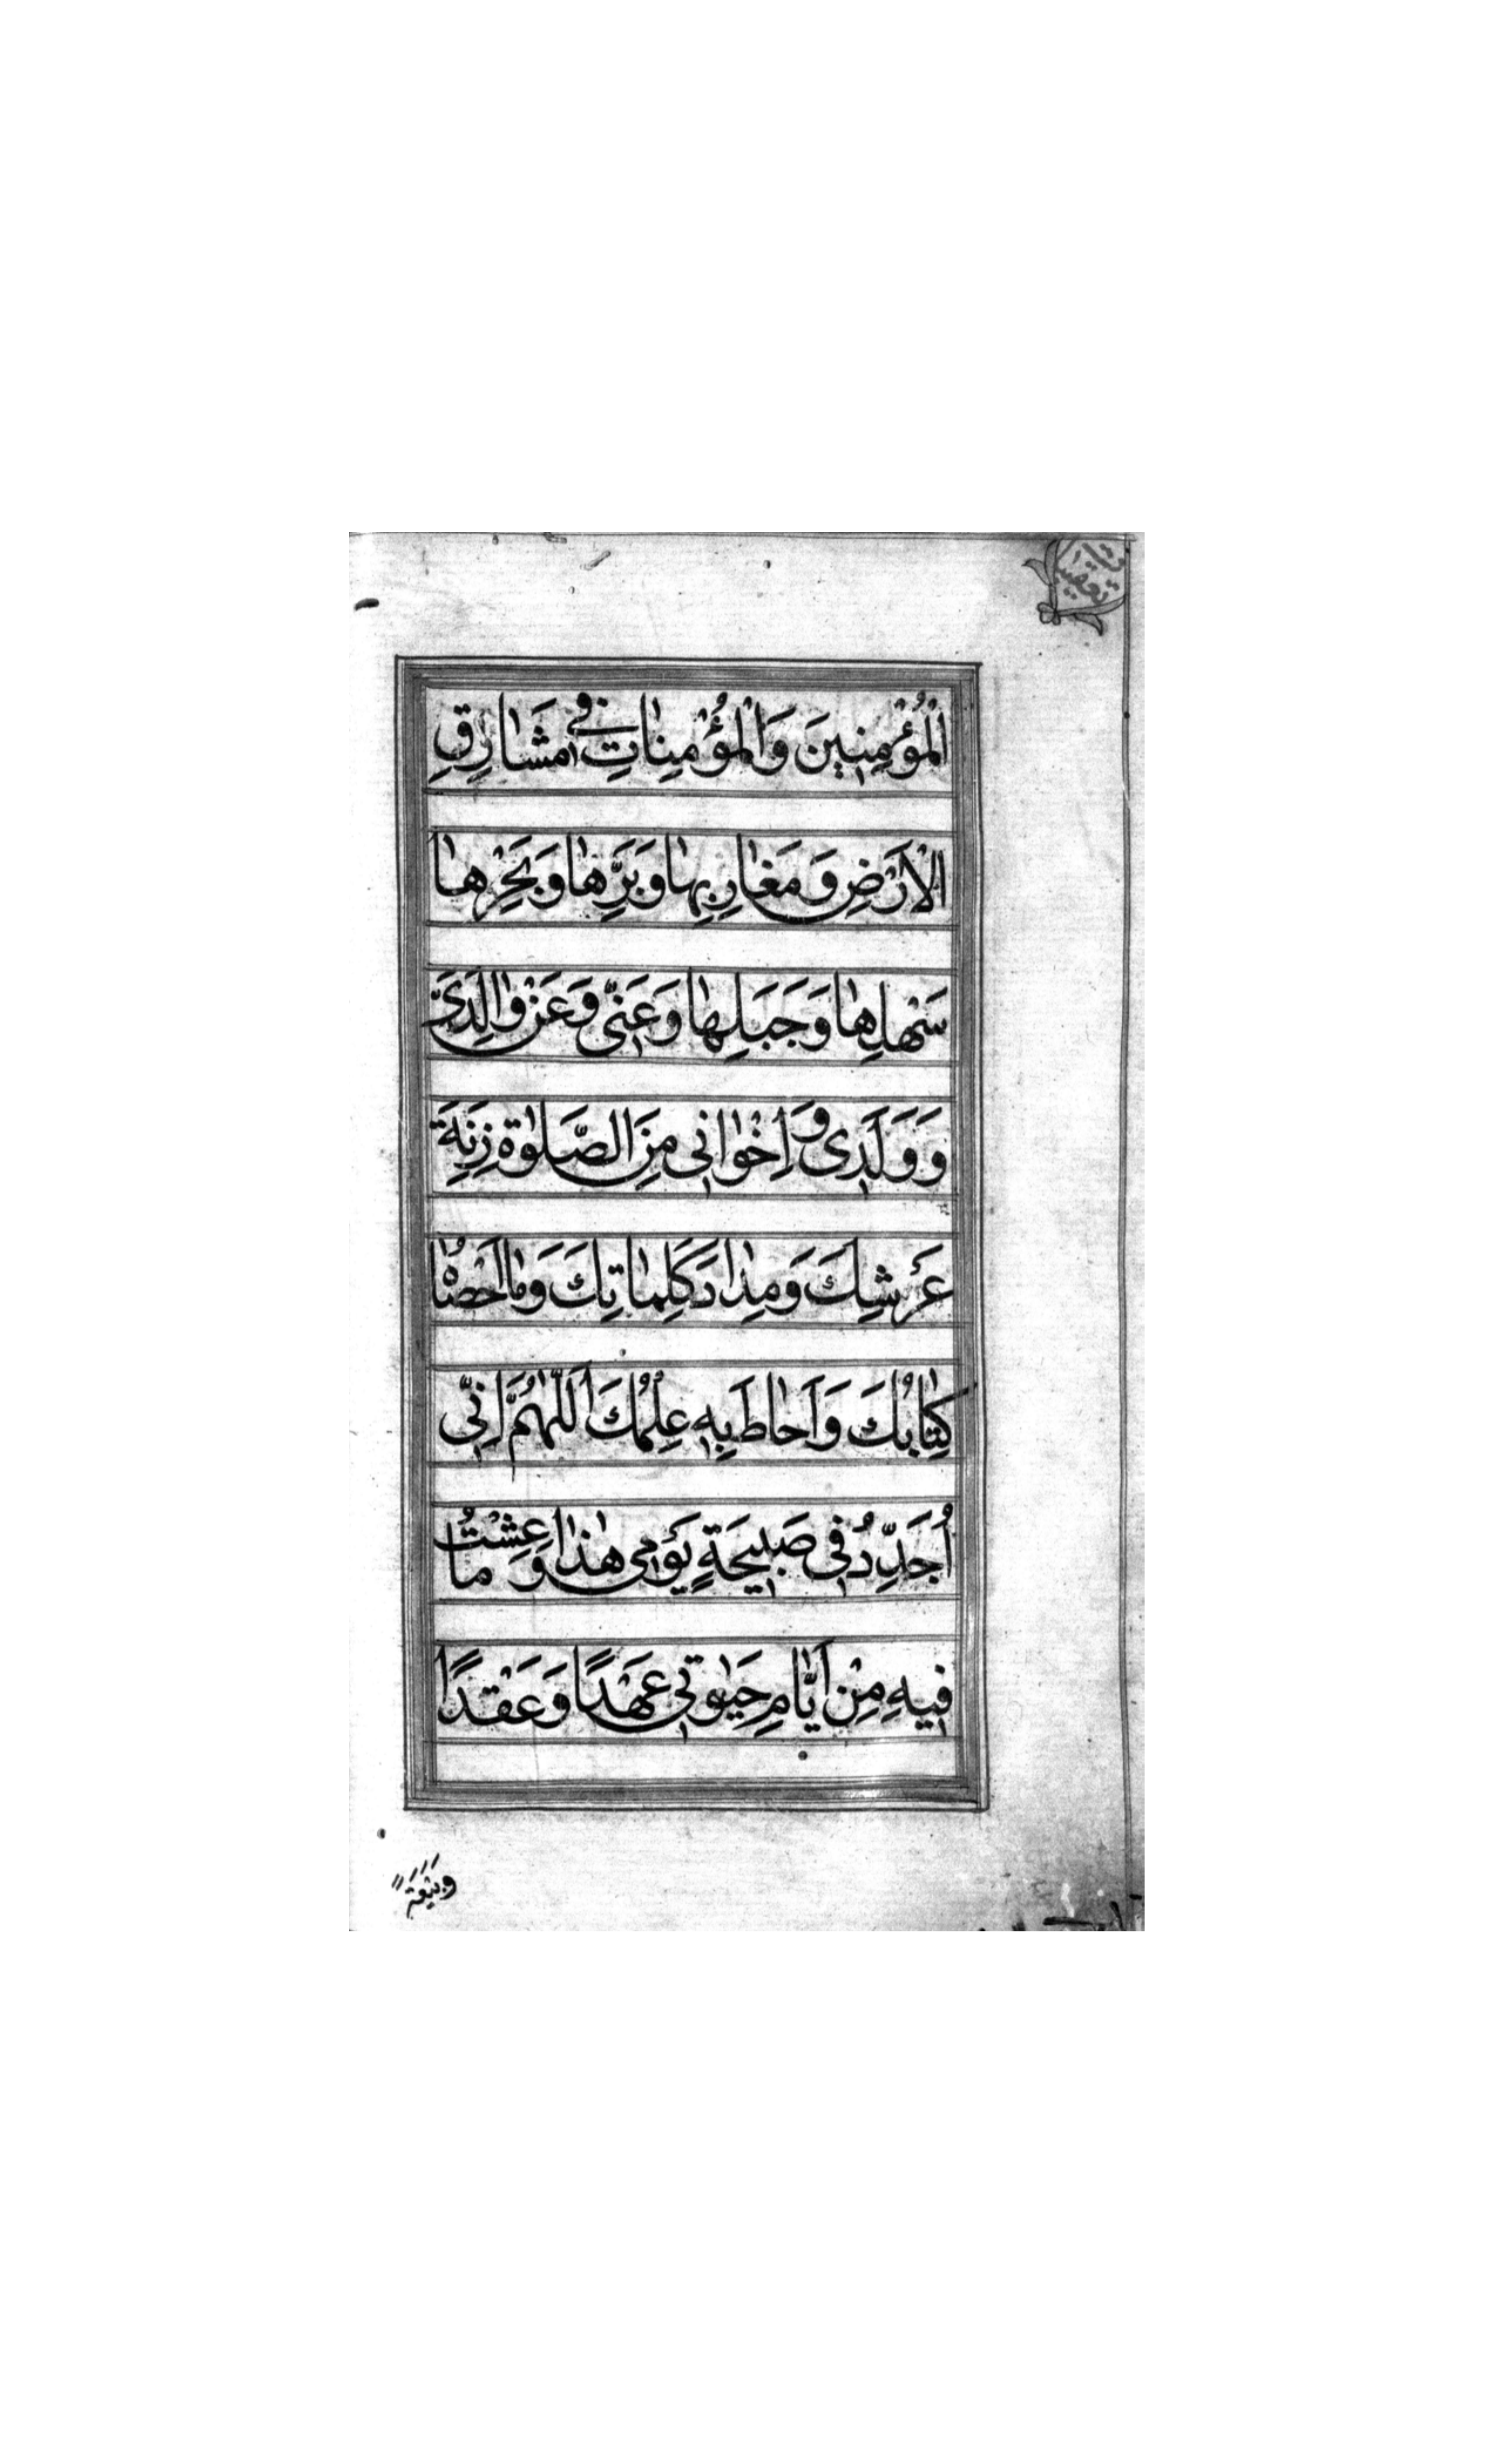 الْمُؤْمِنِينَ وَالْمُؤْمِنَاتِ فِى مَشَارِقِ
الْاَرْضِ وَ مَغَارِبِهَا وَبَرِّهَا وَبَحْرِهَا
سَهْلِهَا وَجَبَلِهَا وَعَنِّى وَعَنْ وَالِدَىَّ
وَ وَلَدِى وَ اِخْوَانِى مِنَ الصَّلٰوةِ زِنَةَ
عَرْشِكَ وَمِدَادَ كَلِمَاتِكَ وَمَا اَحْصَاهُ
كِتَابُكَ وَاَحَاطَ بِهِ عِلْمُكَ اَللّٰهُمَّ اِنِّى
اُجَدِّدُ فِى صَبِيحَةِ يَوْمِى هٰذَا وَ مَا عِشْتُ
فِيهِ مِنْ اَيَّامِ حَيٰوتِى عَهْدًا وَعَقْدًا
وَبَيْعَةً